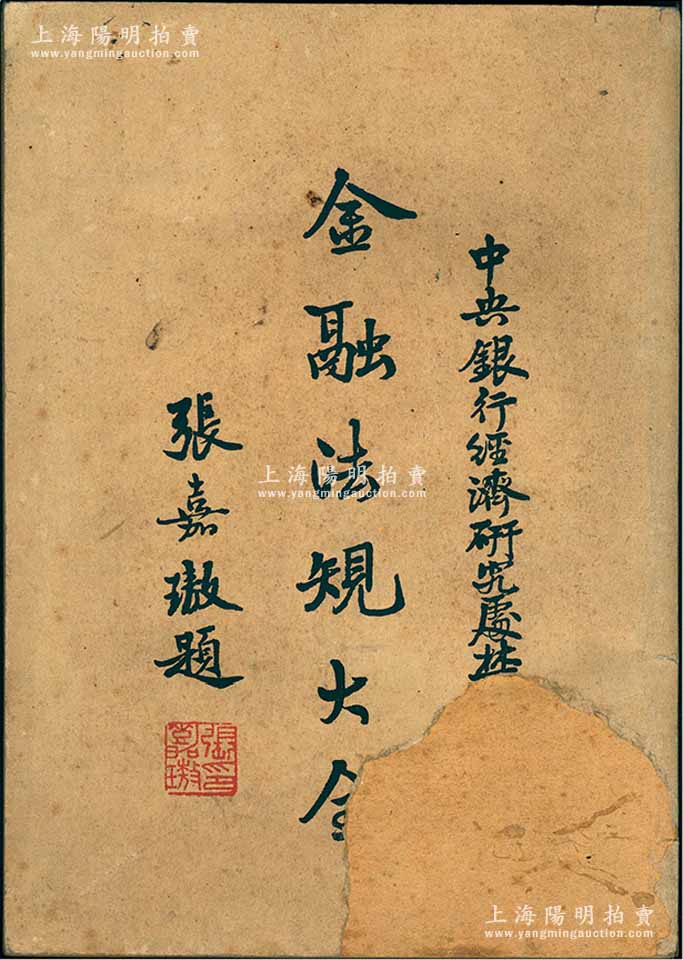 上海陽明拍賣
www.yangmingauction.com
中央銀行經濟研究處
金融法規大全
上海陽明拍賣
www.yangmingauction.com
張嘉璈題
張印
嘉璈
上海陽明拍賣
www.yangmingauction.com